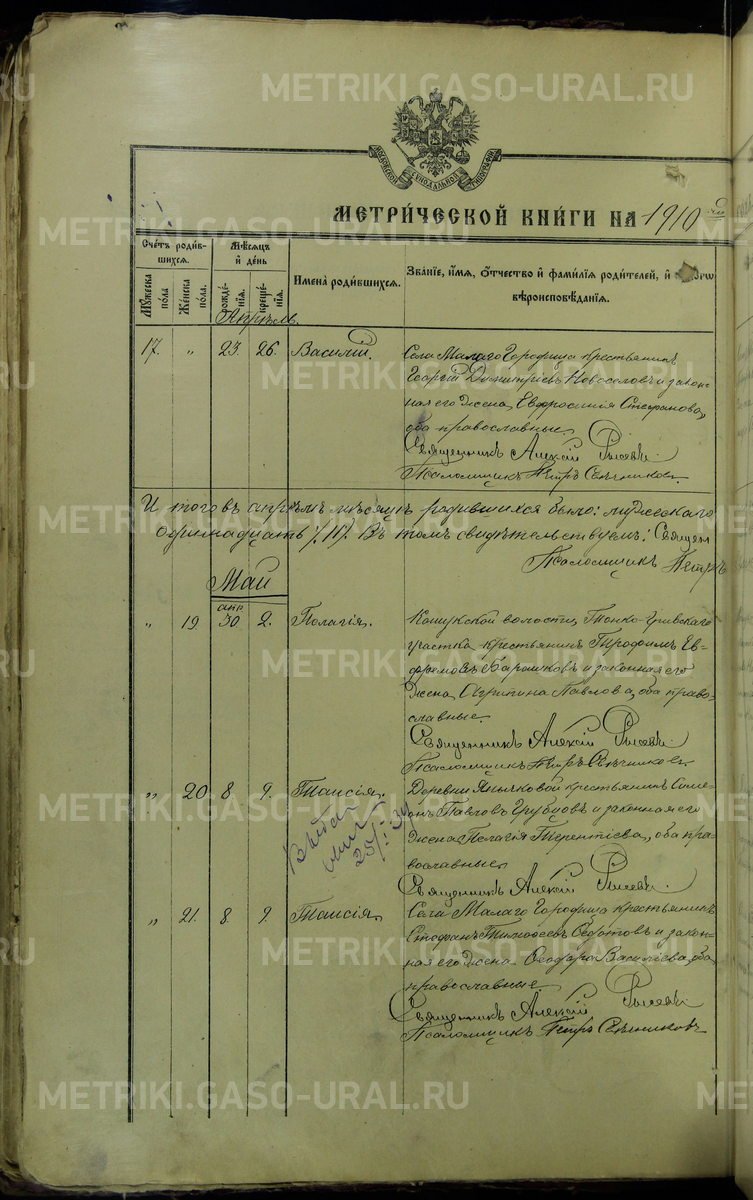 METRIKI.GASO-URAL.RU
МЕТРИ́ЧЕСКОЙ КНИ́ГИ НА 1910
Сче́тъ роди́в-
шихся.
Му́жеска
пола
Же́нска
пола.
Мѣ́сяцъ
и҆ де́нь
рожде́-
нія.
креще́-
нія.
Имена̀ роди́вшихся.
Зва́ніе, и҆́мя, ѻ҆́тчество и҆ фами́лія роди́телей, и҆
вѣроисповѣ́данія.
Апрѣль.
17. " 23. 26. Василій. Села Малаго Городища крестьянинъ
Георгій Димитріевъ Новоселовъ и закон-
ная его жена Евфросинія Стефанова,
оба православные.
Священникъ Алексій
Псаломщикъ Петръ Свѣчниковъ.
И того въ апрѣлѣ мѣсяцѣ родившихся было: мужескаго
одиннадцать /11/. Въ томъ свидѣтельствуемъ: Священ
Псаломщикъ Петръ
Май
апр
" 19. 30 2. Пелагія. волости,
участка крестьянинъ Трофимъ Ев-
фремовъ и законная его
жена Агрипина Павлова, оба право-
славные.
Священникъ Алексій
Псаломщикъ Петръ Свѣчниковъ.
" 20. 8 9. Таисія. Деревни крестьянинъ Симе-
онъ Павловъ Трубцовъ и законная его
жена Пелагія Терентіева, оба пра-
вославные.
Священникъ Алексій
25/I 34
" 21. 8 9. Таисія. Села Малаго Городища крестьянинъ
Стефанъ Тимофеевъ Федотовъ и закон-
ная его жена Феодора Васильева, оба
православные.
Священникъ Алексій
Псаломщикъ Петръ Свѣчниковъ
METRIKI.GASO-URAL.RU